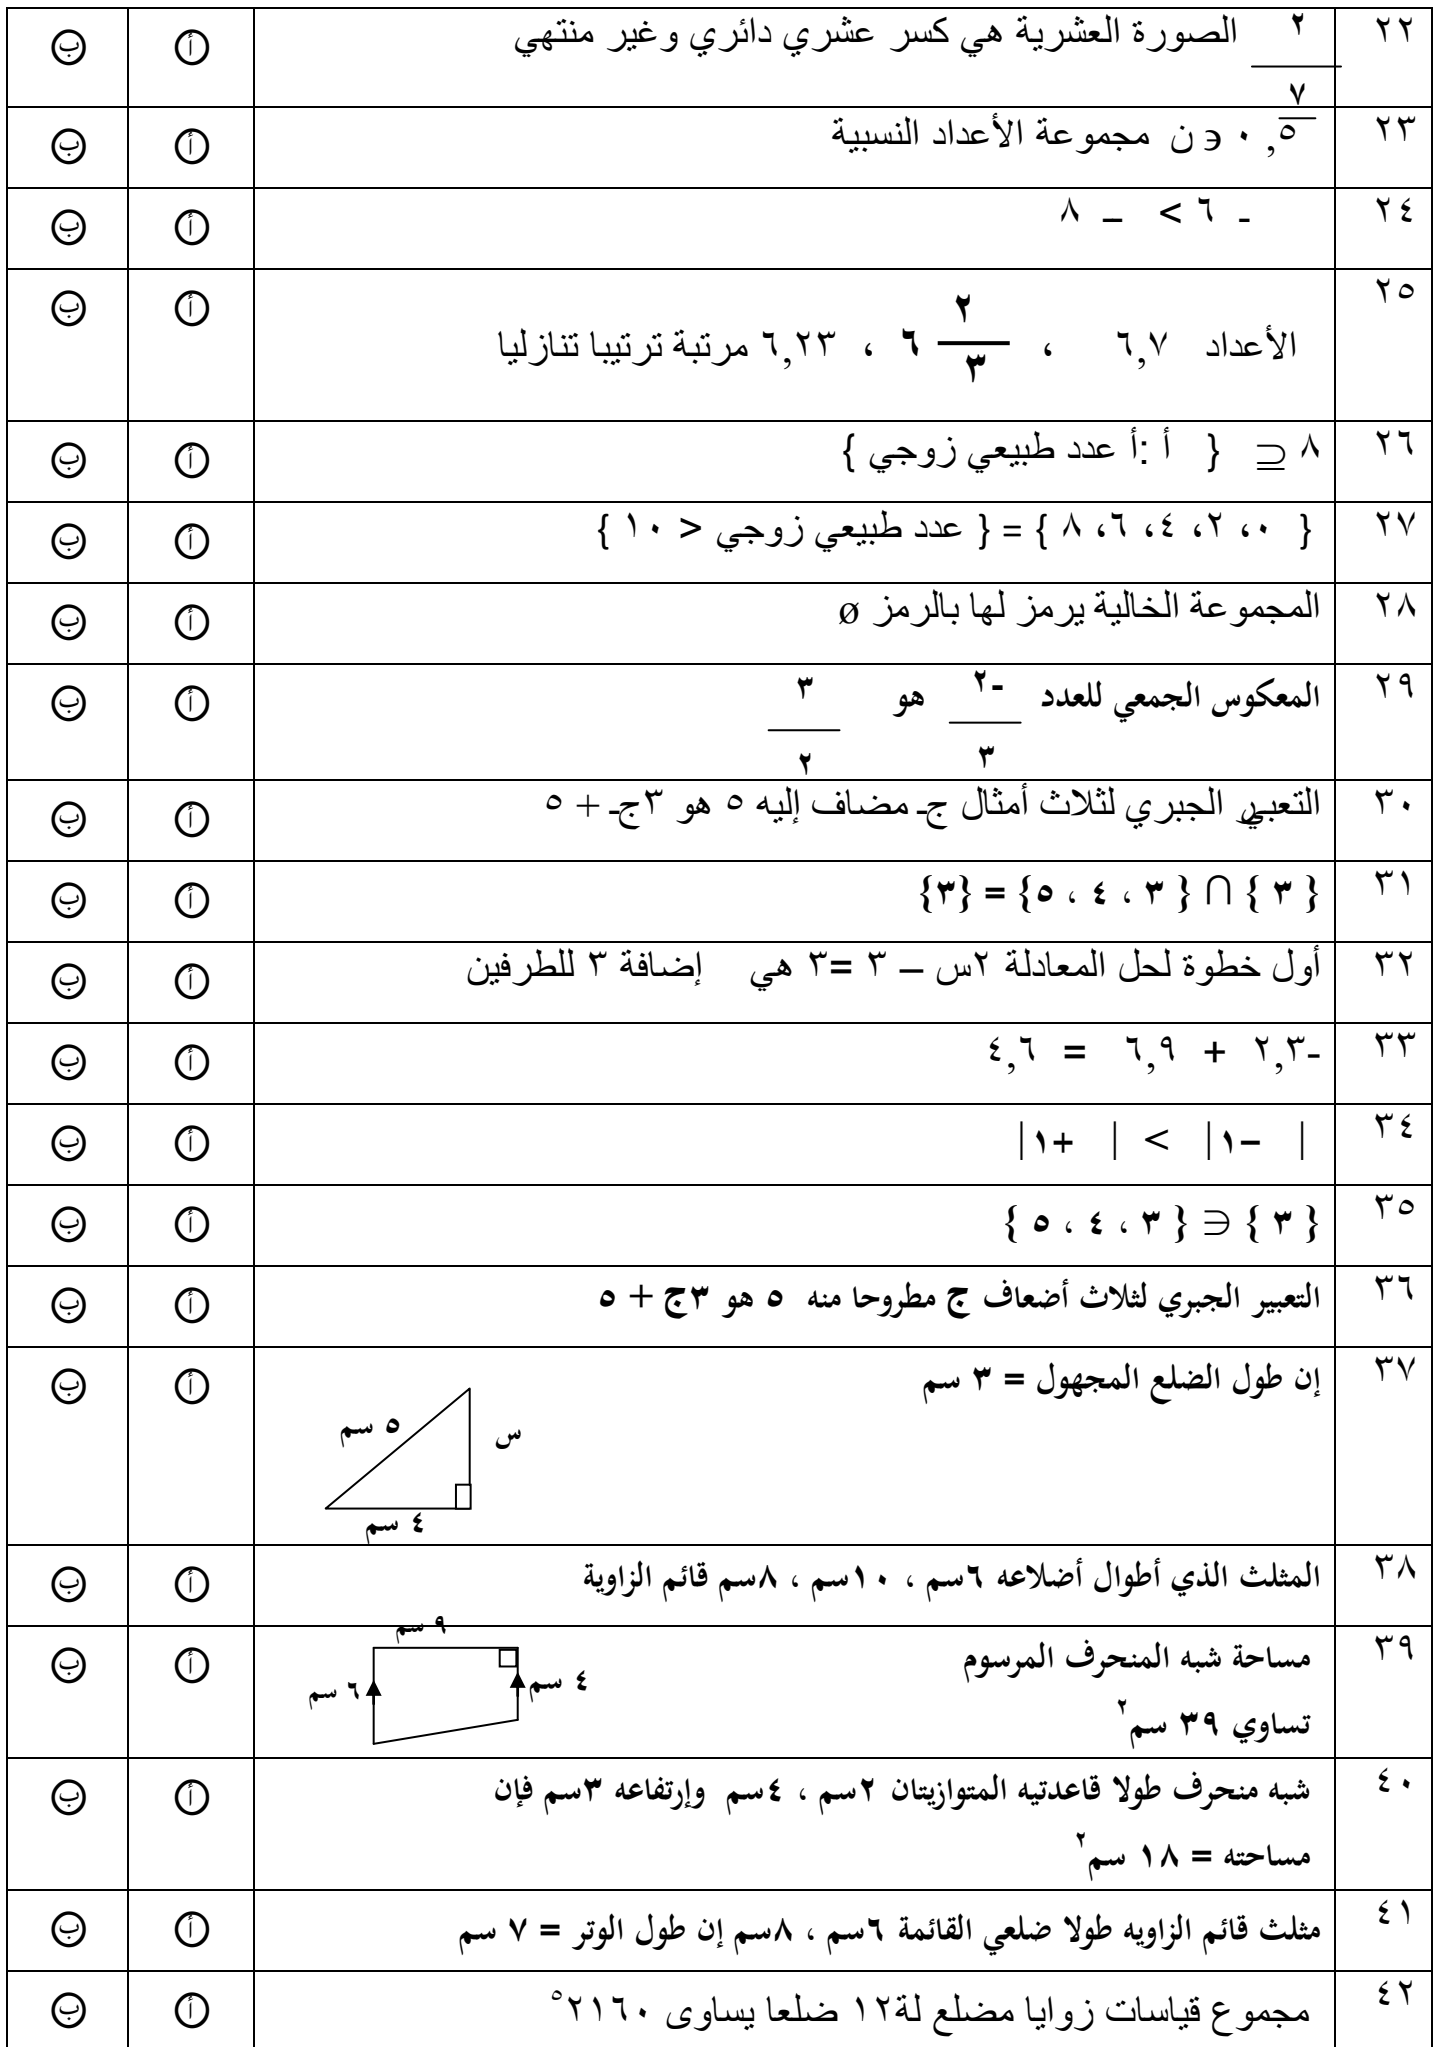 ٢٢ ٢/٧ الصورة العشرية هي كسر عشري دائري وغير منتهي أ ب
٢٣ ٠,٥̅ э ن مجموعة الأعداد النسبية أ ب
٢٤ - ٦ > – ٨ أ ب
٢٥ الأعداد ٦,٧ ، ٦ ٢/٣ ، ٦,٢٣ مرتبة ترتيبا تنازليا أ ب
٢٦ ٨ ⊆ { أ :أ عدد طبيعي زوجي } أ ب
٢٧ { ٠، ٢، ٤، ٦، ٨ } = { عدد طبيعي زوجي < ١٠ } أ ب
٢٨ المجموعة الخالية يرمز لها بالرمز ø أ ب
٢٩ المعكوس الجمعي للعدد -٢/٣ هو ٣/٢ أ ب
٣٠ التعبير الجبري لثلاث أمثال جـ مضاف إليه ٥ هو ٣جـ + ٥ أ ب
٣١ { ٣ } ∩ { ٣ ، ٤ ، ٥} = {٣} أ ب
٣٢ أول خطوة لحل المعادلة ٢س – ٣ =٣ هي إضافة ٣ للطرفين أ ب
٣٣ -٢,٣ + ٦,٩ = ٤,٦ أ ب
٣٤ | −١| > | +١| أ ب
٣٥ { ٣ } ∈ { ٣ ، ٤ ، ٥ } أ ب
٣٦ التعبير الجبري لثلاث أضعاف ج مطروحا منه ٥ هو ٣ج + ٥ أ ب
٣٧ إن طول الضلع المجهول = ٣ سم أ ب
٥ سم
س
٤ سم
٣٨ المثلث الذي أطوال أضلاعه ٦سم ، ١٠سم ، ٨سم قائم الزاوية أ ب
٣٩ مساحة شبه المنحرف المرسوم أ ب
تساوي ٣٩ سم٢
٩ سم
٤ سم
٦ سم
٤٠ شبه منحرف طولا قاعدتيه المتوازيتان ٢سم ، ٤سم وإرتفاعه ٣سم فإن أ ب
مساحته = ١٨ سم٢
٤١ مثلث قائم الزاويه طولا ضلعي القائمة ٦سم ، ٨سم إن طول الوتر = ٧ سم أ ب
٤٢ مجموع قياسات زوايا مضلع لة١٢ ضلعا يساوى ٢١٦٠° أ ب